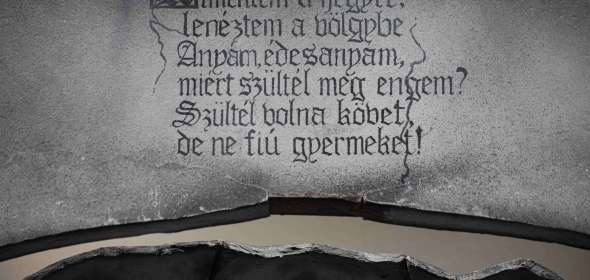 a hegyre,
lenéztem a völgybe
Anyám, édesanyám,
miért szültél meg engem?
Szültél volna követ,
de ne fiú gyermeket!